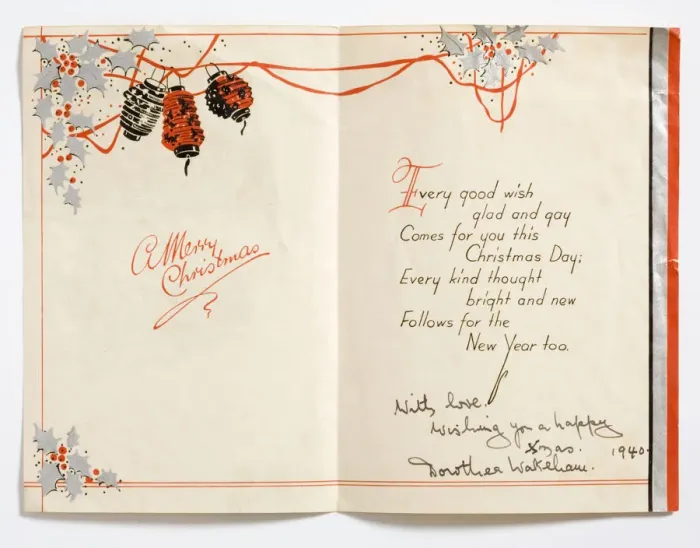 A Merry
Christmas
Every good wish
glad and gay
Comes for you this
Christmas Day;
Every kind thought
bright and new
Follows for the
New Year too.
With love.
Wishing you a happy
Xmas. 1940.
Dorothea Wakeham.